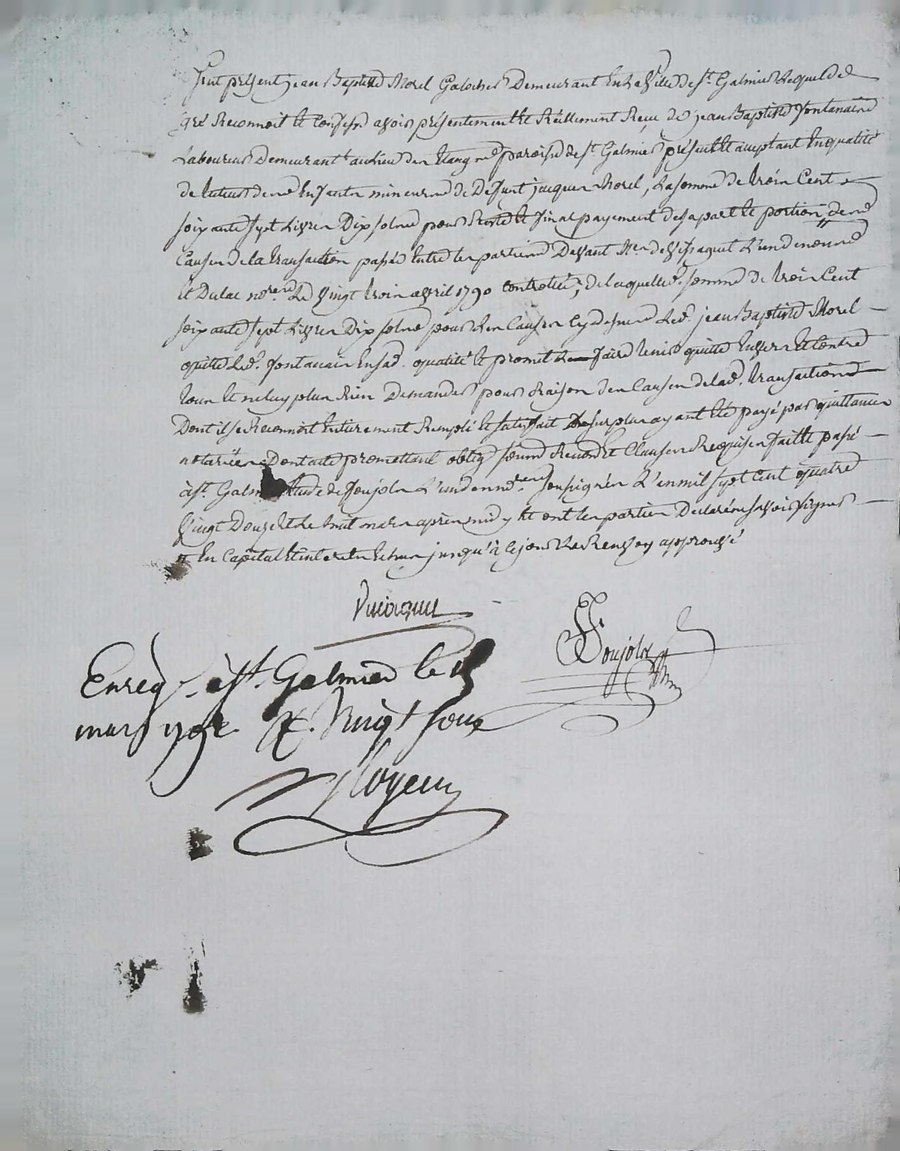 fut présent jean Baptiste Morel Galocher Demeurant En la Ville de St. Galmier Lequel de
gré Reconnoit et Confesse avoir présentement et Réellement Reçu de jean Baptiste fontanaire
Laboureur Demeurant au lieu de parroisse de St. Galmier présent et acceptant En qualité
de tuteur des Enfants mineurs de Deffunt jacques Morel, La somme de trois Cent
soixante sept Livres Dix sols pour Reste et final payement de sa part et portion des
Causes de la transaction passée Entre les parties Devant Me. L'un de nous
et Dulac nores. Le Vingt trois avril 1790 controllée, de laquelle de. somme de trois Cent
soixante sept Livres Dix sols pour les Causes Cy dessus Led. jean Baptiste Morel
quitte Led. fontanair En sad. qualité et promet faire tenir quitte Envers et Contre
tous et ne luy plus Rien Demander pour Raison des Causes de lad. transaction
Dont il se Reconnoit Entierement Rempli et satisfait surplus ayant Eté payé par quittances
notariées Dont acte promettant oblig soumis Renond et Clauses Requises fait et passé
à St. Galmier Etude de Soujols L'un des nores. soussignés L'en mil sept Cent quatre
Vingt Douze et le huit mars après midy Et ont les parties Déclaré ne savoir signer
En Capital Et interets Echus jusqu'à ce jour approuvé
Soujols
Enreg. à St. Galmier le
mars 1792 R. Vingt sous